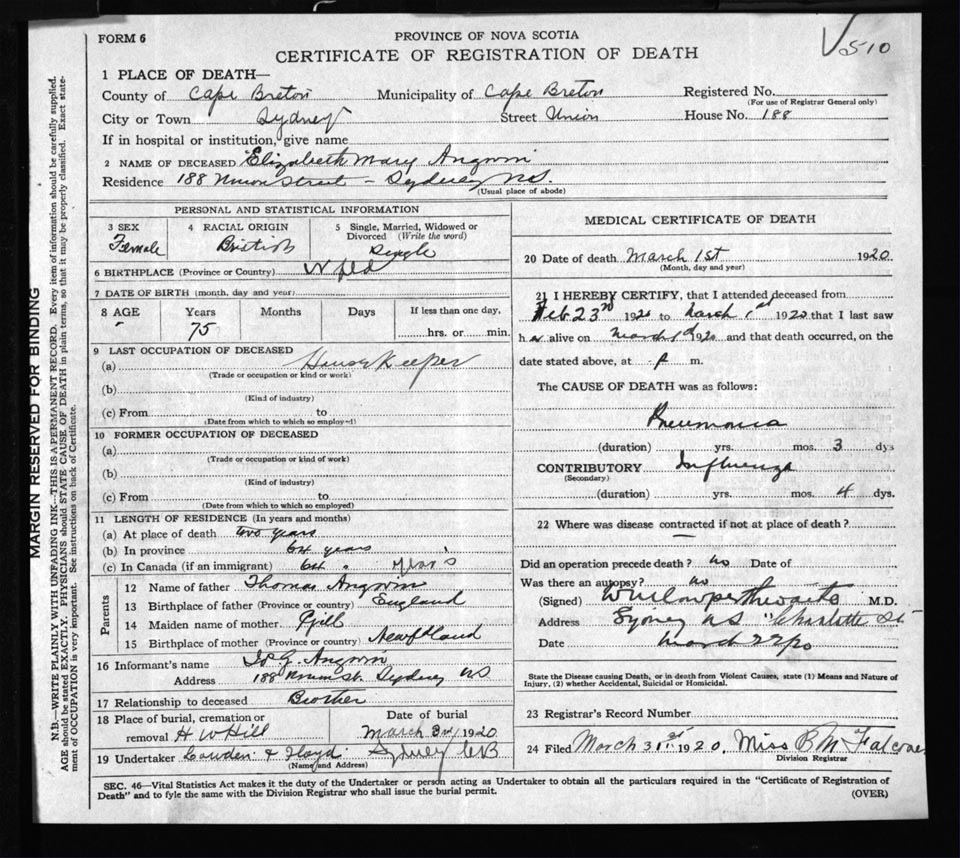 FORM 6
PROVINCE OF NOVA SCOTIA
CERTIFICATE OF REGISTRATION OF DEATH
√510
MARGIN RESERVED FOR BINDING
N.B.—WRITE PLAINLY WITH UNFADING INK—THIS IS A PERMANENT RECORD. Every item of information should be carefully supplied.
AGE should be stated EXACTLY. PHYSICIANS should STATE CAUSE OF DEATH in plain terms, so that it may be properly classified. Exact state-
ment of OCCUPATION is very important. See instructions on back of Certificate.
1 PLACE OF DEATH—
County of Cape Breton Municipality of Cape Breton Registered No.
(For use of Registrar General only)
City or Town Sydney Street Union House No. 188
If in hospital or institution, give name
2 NAME OF DECEASED Elizabeth Mary Angwin
Residence 188 Union Street – Sydney NS.
(Usual place of abode)
PERSONAL AND STATISTICAL INFORMATION
3 SEX Female
4 RACIAL ORIGIN British
5 Single, Married, Widowed or Divorced (Write the word) Single
6 BIRTHPLACE (Province or Country) Nfld
7 DATE OF BIRTH (month, day and year)
8 AGE Years Months Days If less than one day,
75 hrs. or min.
9 LAST OCCUPATION OF DECEASED
(a) House Keeper
(Trade or occupation or kind or work)
(b)
(Kind of industry)
(c) From to
(Date from which to which so employed)
10 FORMER OCCUPATION OF DECEASED
(a)
(Trade or occupation or kind of work)
(b)
(Kind of industry)
(c) From to
(Date from which to which so employed)
11 LENGTH OF RESIDENCE (In years and months)
(a) At place of death two years
(b) In province 64 years
(c) In Canada (if an immigrant) 64 " years
Parents
12 Name of father Thomas Angwin
13 Birthplace of father (Province or country) England
14 Maiden name of mother Gill
15 Birthplace of mother (Province or country) Newfoundland
16 Informant's name J. G. Angwin
Address 188 Union St. Sydney NS
17 Relationship to deceased Brother
18 Place of burial, cremation or removal H W Hill
Date of burial March 3rd, 1920
19 Undertaker Lowden & Floyd Sydney CB
(Name and Address)
MEDICAL CERTIFICATE OF DEATH
20 Date of death March 1st 1920
(Month, day and year)
21 I HEREBY CERTIFY, that I attended deceased from
Feb 23rd 1920 to March 1st 1920 that I last saw
h er alive on March 1st 1920 and that death occurred, on the
date stated above, at P m.
The CAUSE OF DEATH was as follows:
Pneumonia
(duration) yrs. mos. 3 dys
CONTRIBUTORY Influenza
(Secondary)
(duration) yrs. mos. 4 dys.
22 Where was disease contracted if not at place of death?
—
Did an operation precede death? no Date of
Was there an autopsy? no
(Signed) M.D.
Address Sydney NS Charlotte St
Date March
State the Disease causing Death, or in death from Violent Causes, state (1) Means and Nature of
Injury, (2) whether Accidental, Suicidal or Homicidal.
23 Registrar's Record Number
24 Filed March 31st 1920, Miss B M
Division Registrar
SEC. 46—Vital Statistics Act makes it the duty of the Undertaker or person acting as Undertaker to obtain all the particulars required in the "Certificate of Registration of
Death" and to fyle the same with the Division Registrar who shall issue the burial permit.
(OVER)